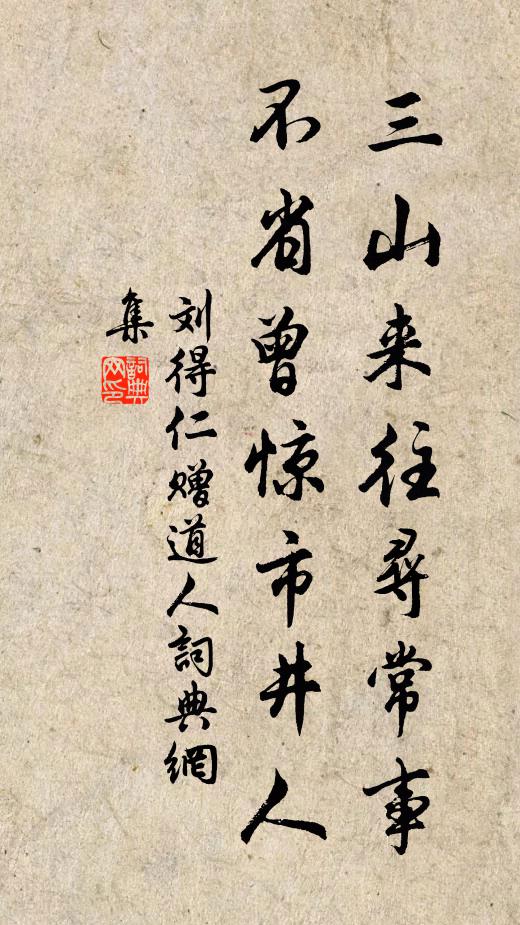 三山来往尋常事
不省曾惊市井人
刘得仁赠道人詞典網
集
詞典
网印